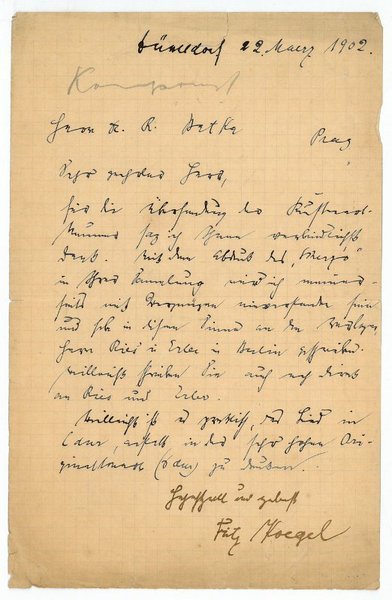 Düsseldorf 22. Maerz 1902.
Komponist
Herrn A. R. Prag
Sehr geehrter Herr,
für die Übersendung der
Nummer sag ich Ihnen verbindlichst
Dank. Mit dem Abdruck des
in Ihrer Sammlung will ich meiner-
seits mit Vergnügen einverstanden sein
und habe in diesem Sinne an den Verleger
Herrn Ries u. Erler in Berlin geschrieben.
Vielleicht schreiben Sie auch noch direkt
an Ries und Erler.
Vielleicht ist es praktisch, das Lied in
C dur, anstatt in der sehr hohen Ori-
ginaltonart zu drucken.
Hochachtungsvoll und ergebenst
Fritz Koegel